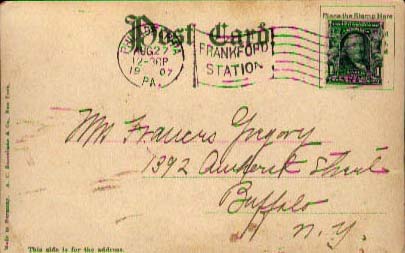 Place the Stamp Here
Post Card
AUG 27
12-30P
1907
PA.
FRANKFORD
STATION
Mr Francis Gregory
1392 Amherst Street
Buffalo
N.Y.
Made in Germany. A. C. Bosselman & Co., New York.
This side is for the address.